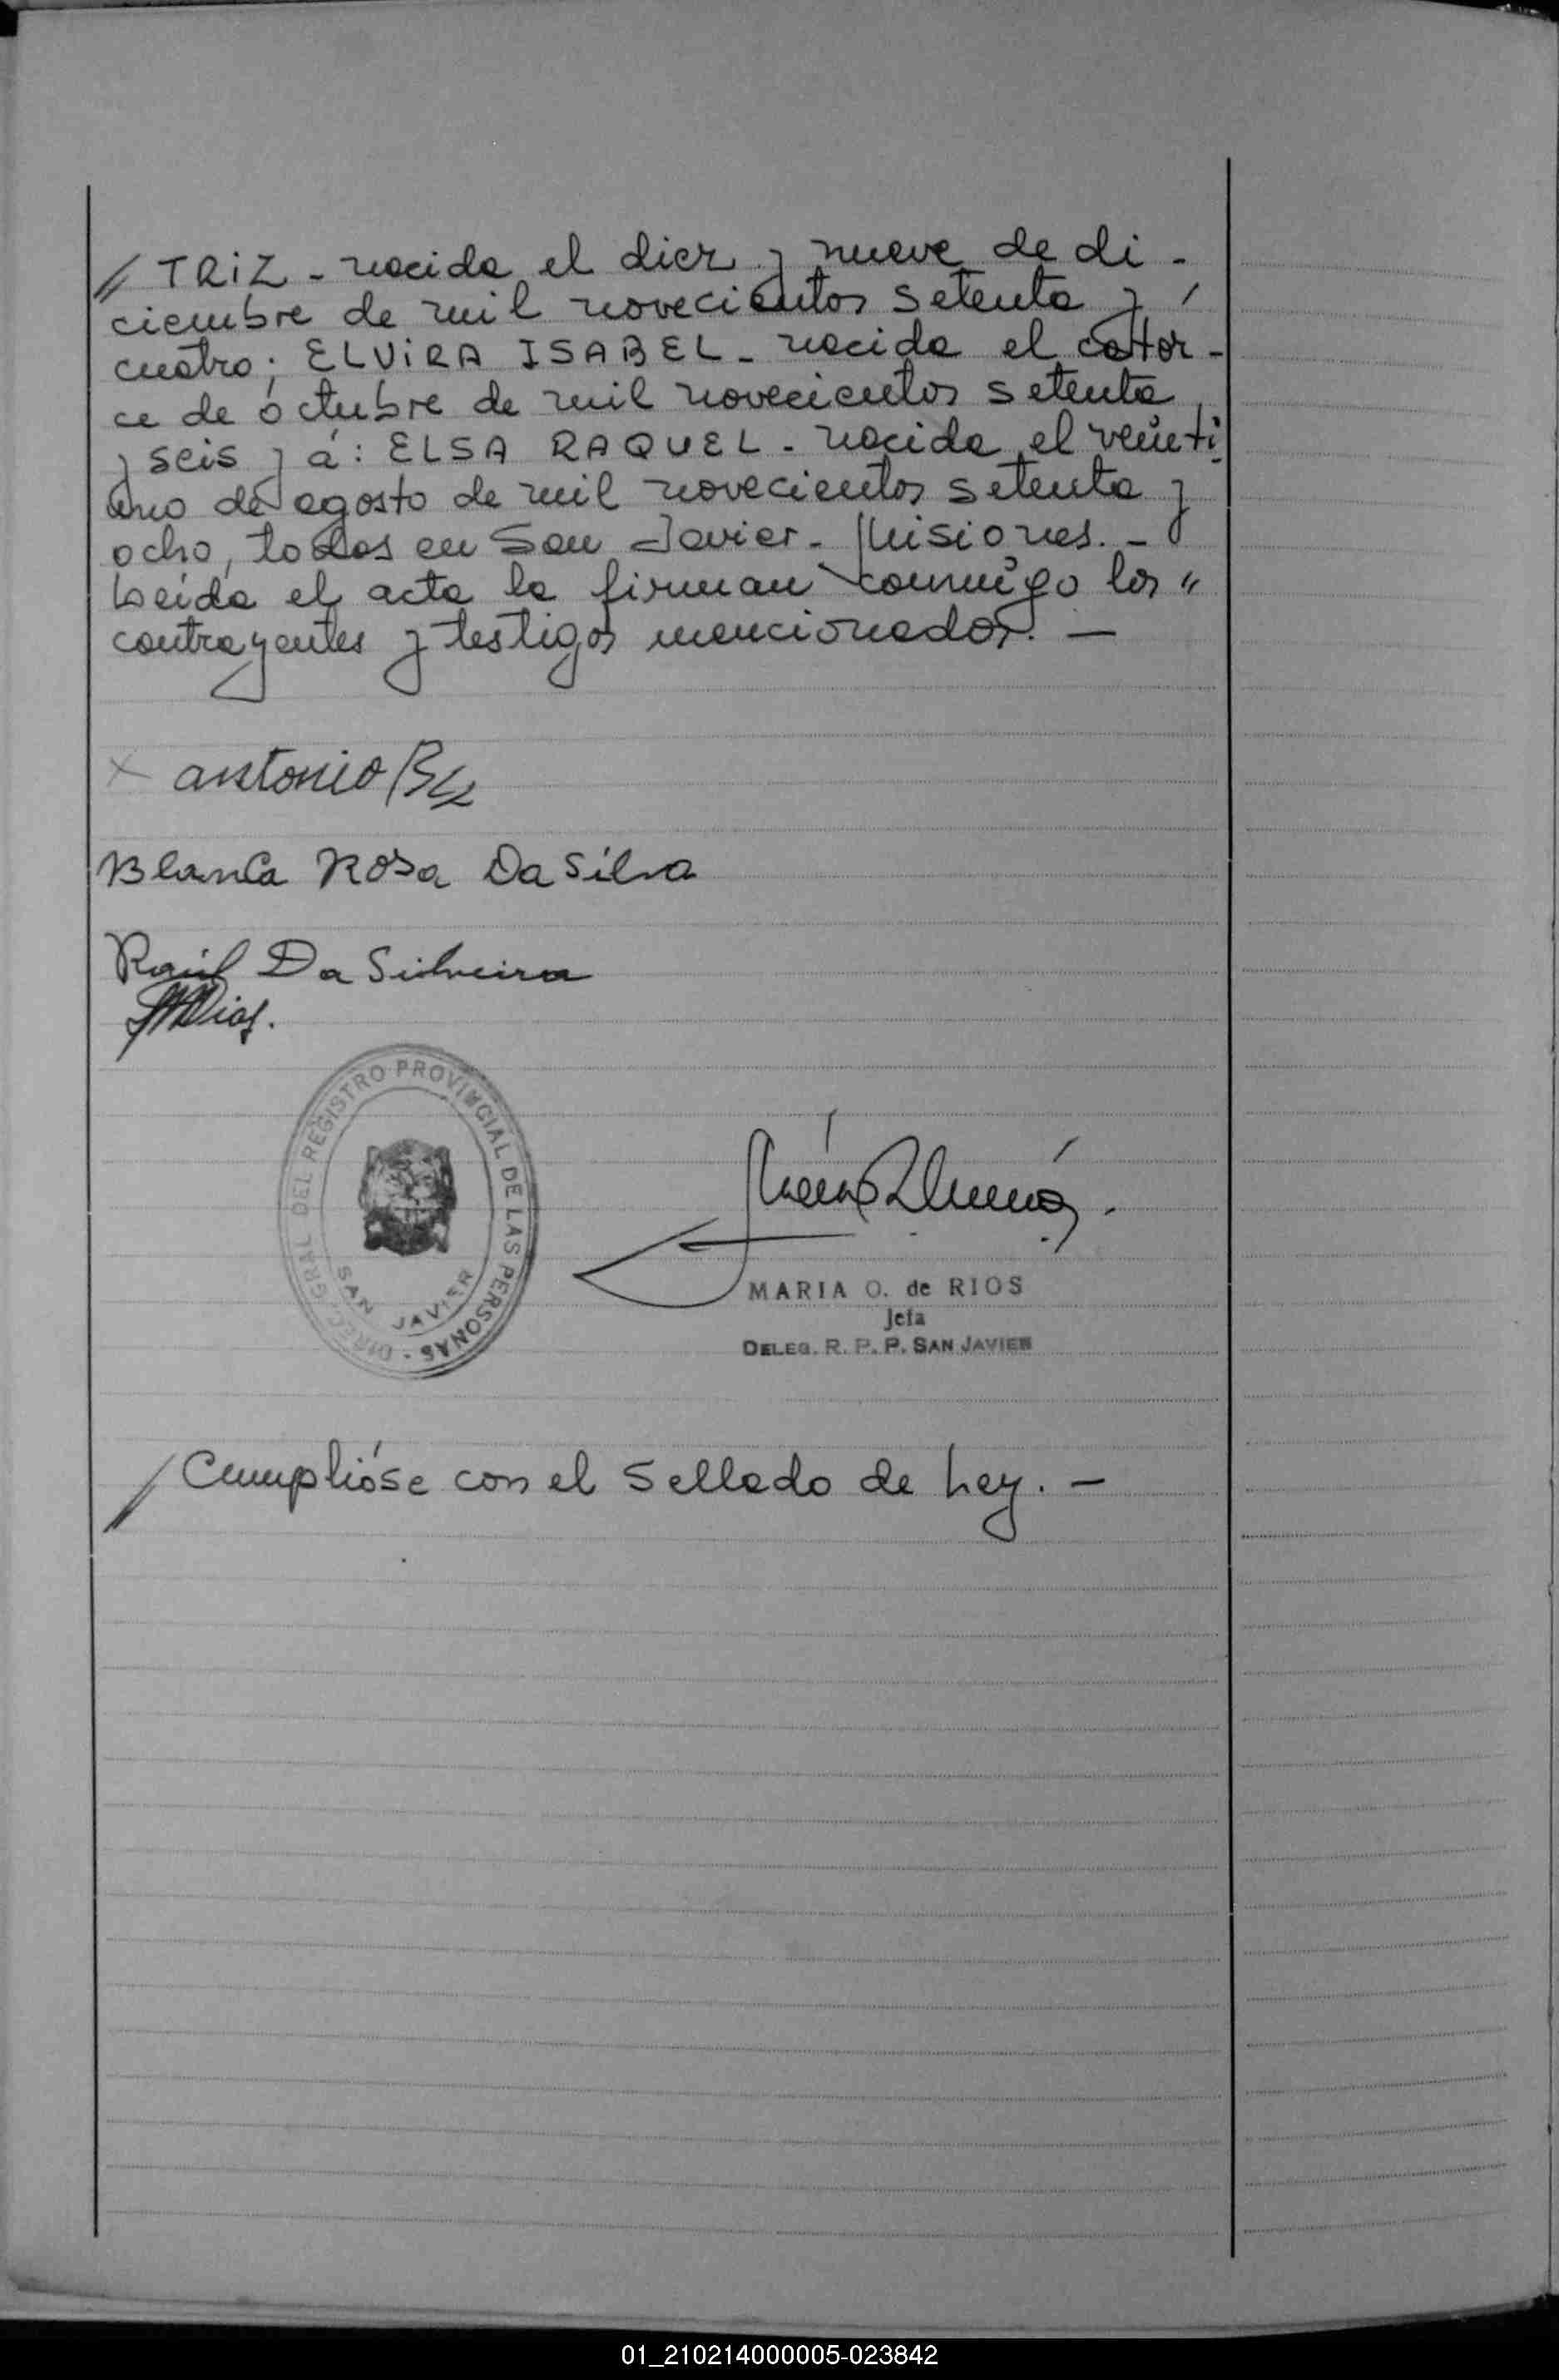 // TRIZ - nacida el diez y nueve de di -
ciembre de mil novecientos setenta y /
cuatro; ELVIRA ISABEL - nacida el cator -
ce de octubre de mil novecientos setenta
y seis y á: ELSA RAQUEL - nacida el veinti
uno de agosto de mil novecientos setenta y
ocho, todos en San Javier - Misiones. -
Leída el acta la firman conmigo los "
contrayentes y testigos mencionados. —
x antonio
Blanca Rosa Da Silva
Raúl Da Silveira
Dias.
DIREC. GRAL DEL REGISTRO PROVINCIAL DE LAS PERSONAS -
SAN JAVIER
MARIA O. de RIOS
Jefa
DELEG. R. P. P. SAN JAVIER
/ Cumplióse con el sellado de Ley. —
01_210214000005-023842